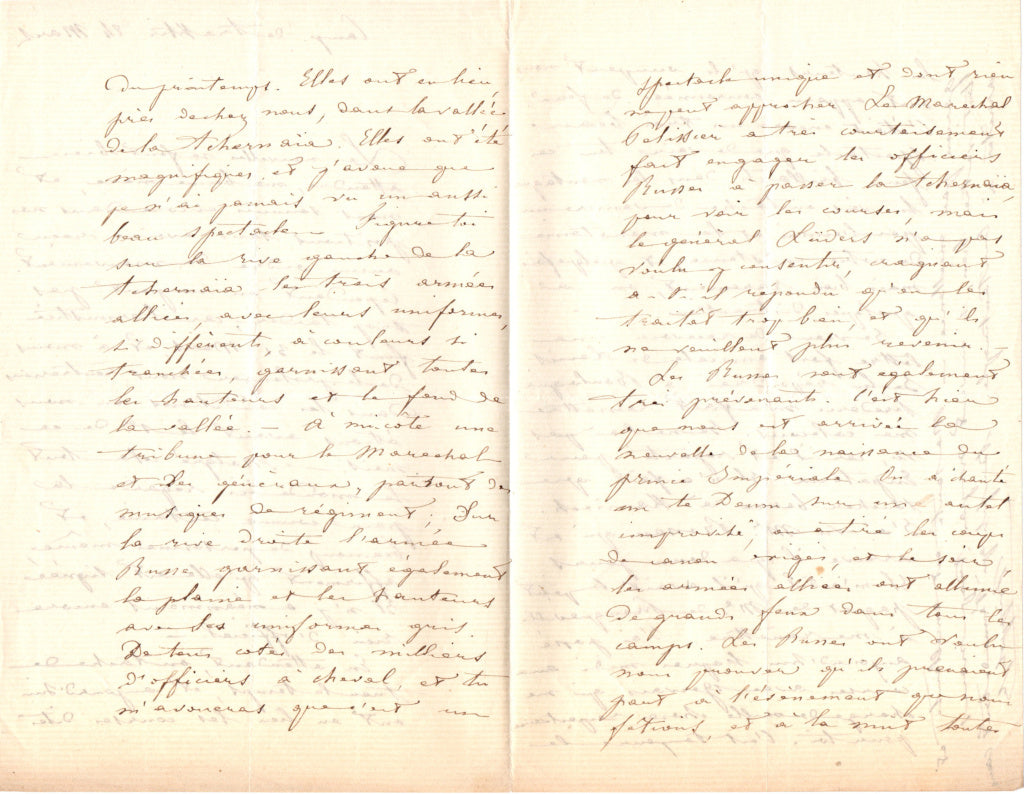 du printemps. Elles ont eu lieu,
près de chez nous, dans la vallée
de la Tchernaïa. Elles ont été
magnifiques, et j'avoue que
je n'ai jamais vu un aussi
beau spectacle. Figure toi
sur la rive gauche de la
Tchernaia les trois armées
alliées, avec leurs uniformes,
si différents, à couleurs si
tranchées, garnissant toutes
les hauteurs et le fond de
la vallée. – À mi coté une
tribune pour le Marechal
et les généraux, partout des
musiques de régiment; Sur
la rive droite l'armée
Russe garnissant également
la plaine et les hauteurs
avec les uniformes gris
De tous cotés des milliers
d'officiers à cheval, et tu
m'avoueras que c'est un
spectacle unique et dont rien
ne peut approcher. Le Marechal
Pelissier a très courtoisement
fait engager les officiers
Russes à passer la Tchernaïa,
pour voir les courses, mais
le général Lüders n'a pas
voulu y consentir, craignant
a-t-il répondu qu'on les
traitât trop bien, et qu'ils
ne veuillent plus revenir. –
Les Russes sont également
très prévenants. C'est hier
que nous est arrivée la
nouvelle de la naissance du
prince Impériale. On a chanté
un te Deum sur un autel
improvisé, on a tiré les coups
de canon exigés, et le soir
les armées alliées ont allumé
de grands feux dans tous les
camps. Les Russes ont voulu
nous prouver qu'ils prenaient
part à l'événement que nous
fêtions, et à la nuit toutes